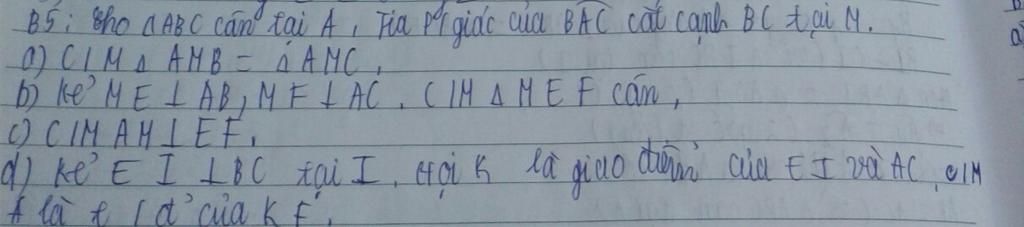 B5: Cho ΔABC cân tại A, Tia p/giác của BAC cắt cạnh BC tại M.
a) C/M Δ AMB = Δ AMC.
b) Kẻ ME ⊥ AB, MF ⊥ AC. C/M Δ MEF cân,
c) C/M AM ⊥ EF.
d) Kẻ EI ⊥ BC tại I. Gọi K là giao điểm của EI và AC, C/M
A là t/đ' của KF.